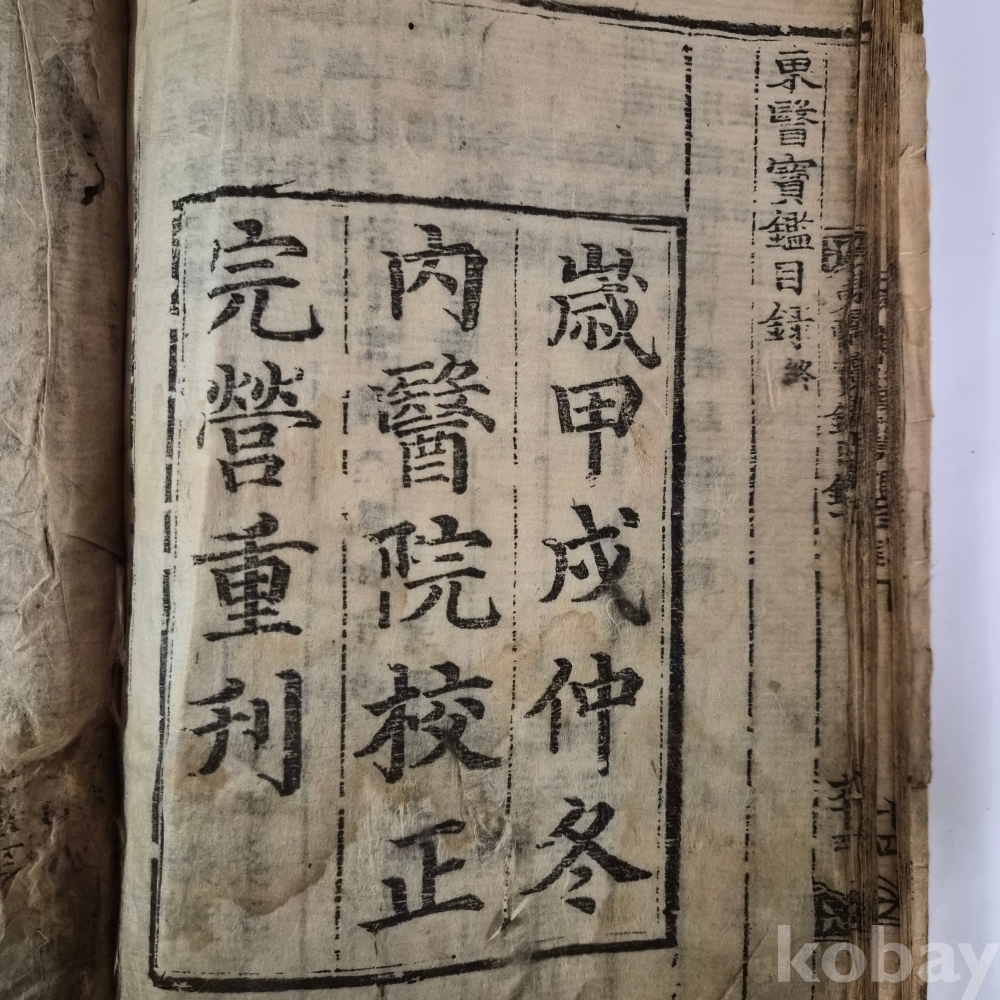 東醫寶鑑目録終
歲甲戌仲冬
內醫院校正
完營重刊
kobay